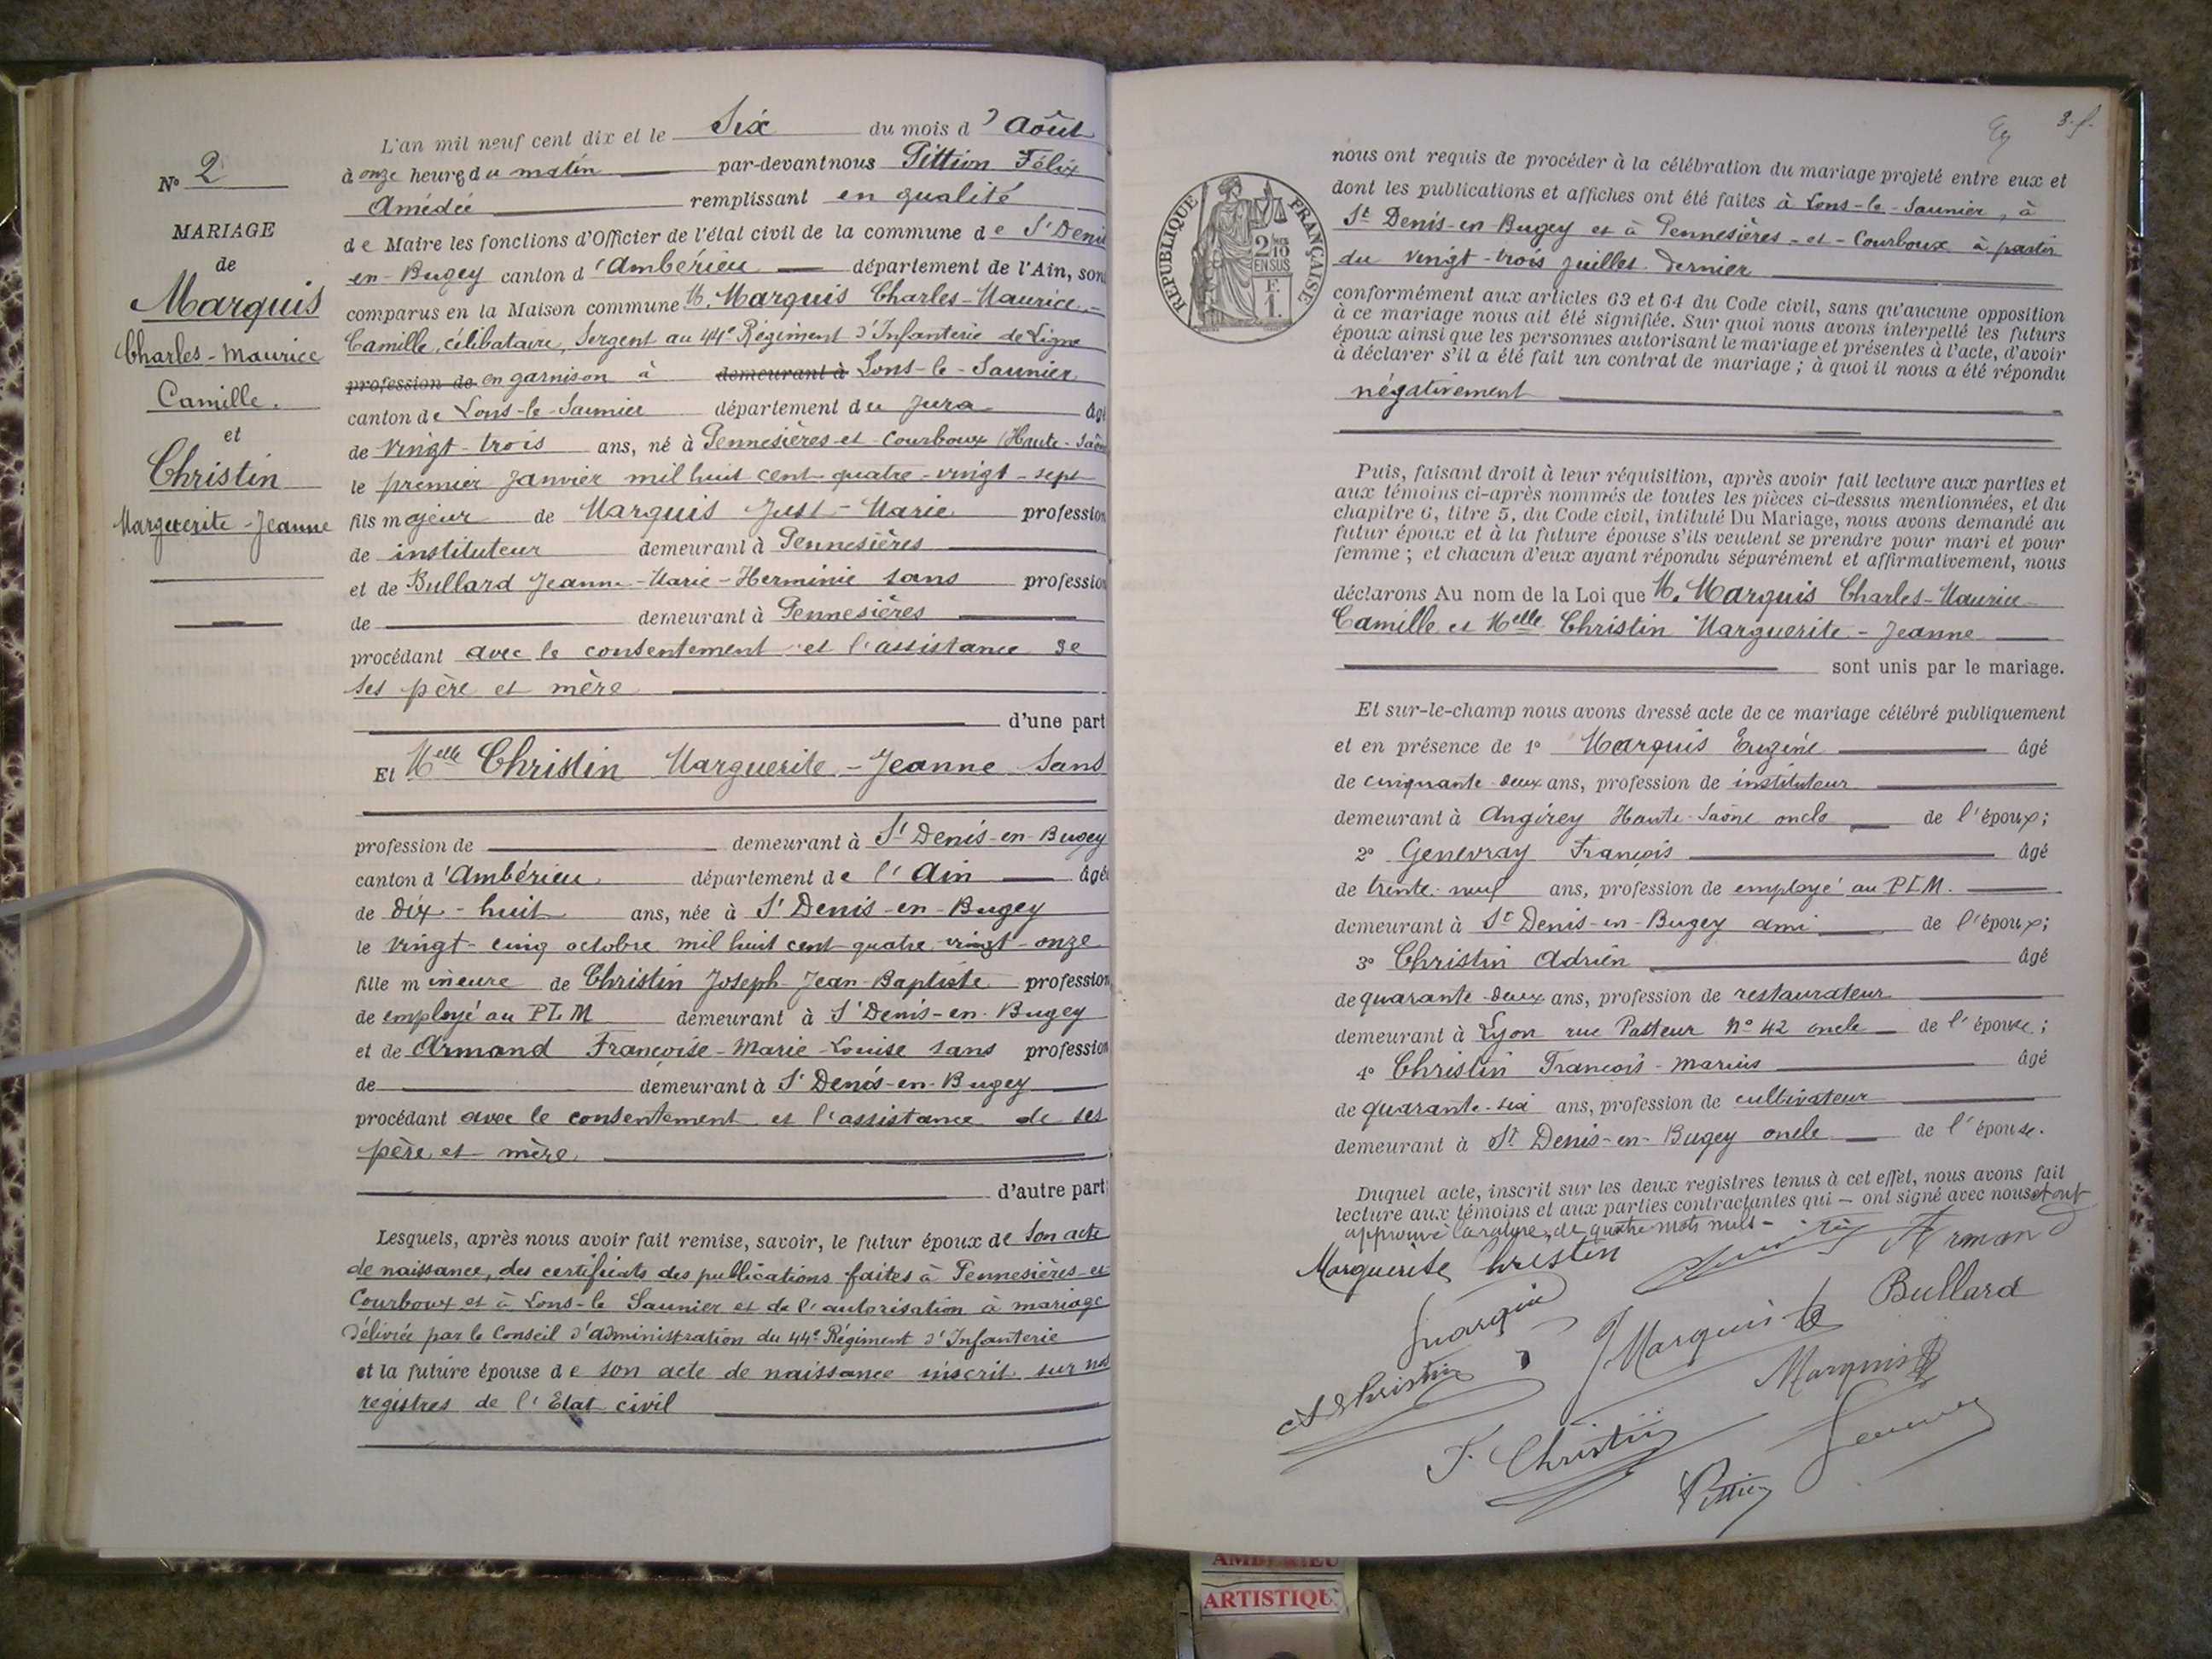 L'an mil neuf cent dix et le Six du mois d'Août
à onze heures du matin par-devant nous Pittion Félix
Amédée remplissant en qualité
de Maire les fonctions d'Officier de l'état civil de la commune de St Denis
en-Bugey canton d'Ambérieu département de l'Ain, sont
comparus en la Maison commune M. Marquis Charles-Maurice-
Camille, célibataire, Sergent au 44e Régiment d'Infanterie de Ligne
profession de en garnison à demeurant à Lons-le-Saunier
canton de Lons-le-Saunier département du Jura âgé
de vingt-trois ans, né à Pennesières-et-Courboux (Haute-Saône
le premier Janvier mil huit cent quatre-vingt-sept
fils majeur de Marquis Just-Marie profession
de instituteur demeurant à Pennesières
et de Bullard Jeanne-Marie-Herminie sans profession
de demeurant à Pennesières
procédant avec le consentement et l'assistance de
ses père et mère
d'une part
Et Melle Christin Marguerite-Jeanne Sans
profession de demeurant à St Denis-en-Bugey
canton d'Ambérieu département de l'Ain âgée
de dix-huit ans, née à St Denis-en-Bugey
le vingt-cinq octobre mil huit cent quatre vingt-onze
fille mineure de Christin Joseph-Jean-Baptiste profession
de employé au PLM demeurant à St Denis-en-Bugey
et de Armand Françoise-Marie-Louise sans profession
de demeurant à St Denis-en-Bugey
procédant avec le consentement et l'assistance de ses
père et mère
d'autre part;
Lesquels, après nous avoir fait remise, savoir, le futur époux de son acte
de naissance, des certificats des publications faites à Pennesières-et-
Courboux et à Lons-le Saunier et de l'autorisation à mariage
délivrée par le Conseil d'administration du 44e Régiment d'Infanterie
et la future épouse de son acte de naissance inscrit sur nos
registres de l'Etat civil
No 2
MARIAGE
de
Marquis
Charles-Maurice
Camille.
et
Christin
Marguerite-Jeanne
3. f.
RÉPUBLIQUE FRANÇAISE
2/10
EN SUS
F.
1.
nous ont requis de procéder à la célébration du mariage projeté entre eux et
dont les publications et affiches ont été faites à Lons-le-Saunier, à
St Denis-en-Bugey et à Pennesières-et-Courboux à partir
du vingt-trois juillet dernier
conformément aux articles 63 et 64 du Code civil, sans qu'aucune opposition
à ce mariage nous ait été signifiée. Sur quoi nous avons interpellé les futurs
époux ainsi que les personnes autorisant le mariage et présentes à l'acte, d'avoir
à déclarer s'il a été fait un contrat de mariage ; à quoi il nous a été répondu
négativement
Puis, faisant droit à leur réquisition, après avoir fait lecture aux parties et
aux témoins ci-après nommés de toutes les pièces ci-dessus mentionnées, et du
chapitre 6, titre 5, du Code civil, intitulé Du Mariage, nous avons demandé au
futur époux et à la future épouse s'ils veulent se prendre pour mari et pour
femme ; et chacun d'eux ayant répondu séparément et affirmativement, nous
déclarons Au nom de la Loi que M. Marquis Charles-Maurice
Camille et Melle Christin Marguerite-Jeanne
sont unis par le mariage.
Et sur-le-champ nous avons dressé acte de ce mariage célébré publiquement
et en présence de 1o Marquis Eugène âgé
de cinquante-deux ans, profession de instituteur
demeurant à Angirey Haute-Saône oncle de l'époux;
2o Genevray François âgé
de trente-neuf ans, profession de employé au PLM.
demeurant à St Denis-en-Bugey ami de l'époux;
3o Christin Adrien âgé
de quarante-deux ans, profession de restaurateur
demeurant à Lyon rue Pasteur No 42 oncle de l'épouse;
4o Christin François-Marius âgé
de quarante-six ans, profession de cultivateur
demeurant à St Denis-en-Bugey oncle de l'épouse.
Duquel acte, inscrit sur les deux registres tenus à cet effet, nous avons fait
lecture aux témoins et aux parties contractantes qui — ont signé avec nous et ont
approuvé la rature de quatre mots nuls -
Marguerite Christin Armand
Marquis J Marquis Bullard
A Christin Marquis
F. Christin
Pittion
AMBERIEU
ARTISTIQU